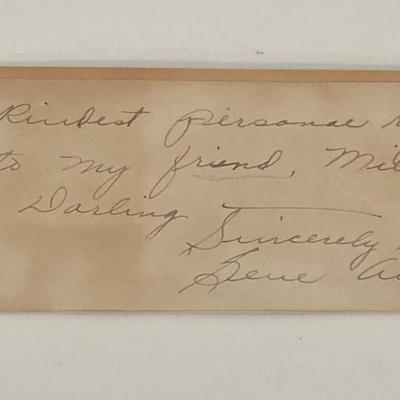 Kindest personae
to my friend, Mil
Darling
Sincerely
Gene Au